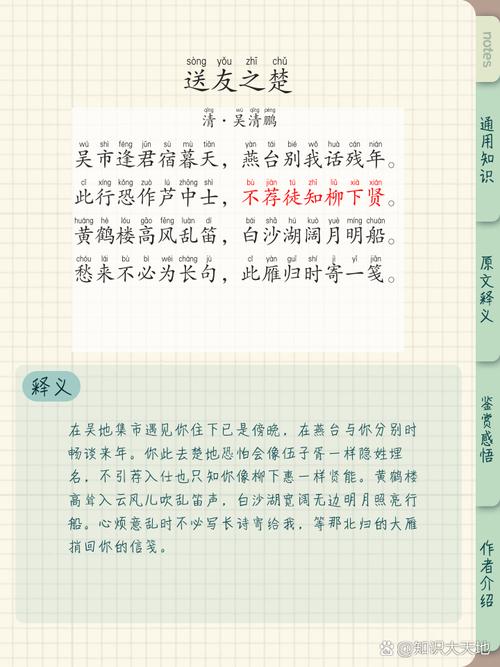 notes
通用知识
原文释义
鉴赏感悟
作者介绍
sòng yǒu zhī chǔ
送友之楚
qīng wú qīng péng
清·吴清鹏
wú shì féng jūn sù mù tiān yàn tái bié wǒ huà cán nián
吴市逢君宿暮天，燕台别我话残年。
cǐ xíng kǒng zuò lú zhōng shì bù jiàn tú zhī liǔ xià xián
此行恐作芦中士，不荐徒知柳下贤。
huáng hè lóu gāo fēng luàn dí bái shā hú kuò yuè míng chuán
黄鹤楼高风乱笛，白沙湖阔月明船。
chóu lái bù bì wéi cháng jù cǐ yàn guī shí jì yī jiān
愁来不必为长句，此雁归时寄一笺。
释义
在吴地集市遇见你住下已是傍晚，在燕台与你分别时
畅谈来年。你此去楚地恐怕会像伍子胥一样隐姓埋
名，不引荐入仕也只知你像柳下惠一样贤能。黄鹤楼
高耸入云风儿吹乱笛声，白沙湖宽阔无边明月照亮行
船。心烦意乱时不必写长诗寄给我，等那北归的大雁
捎回你的信笺。
知识大天地